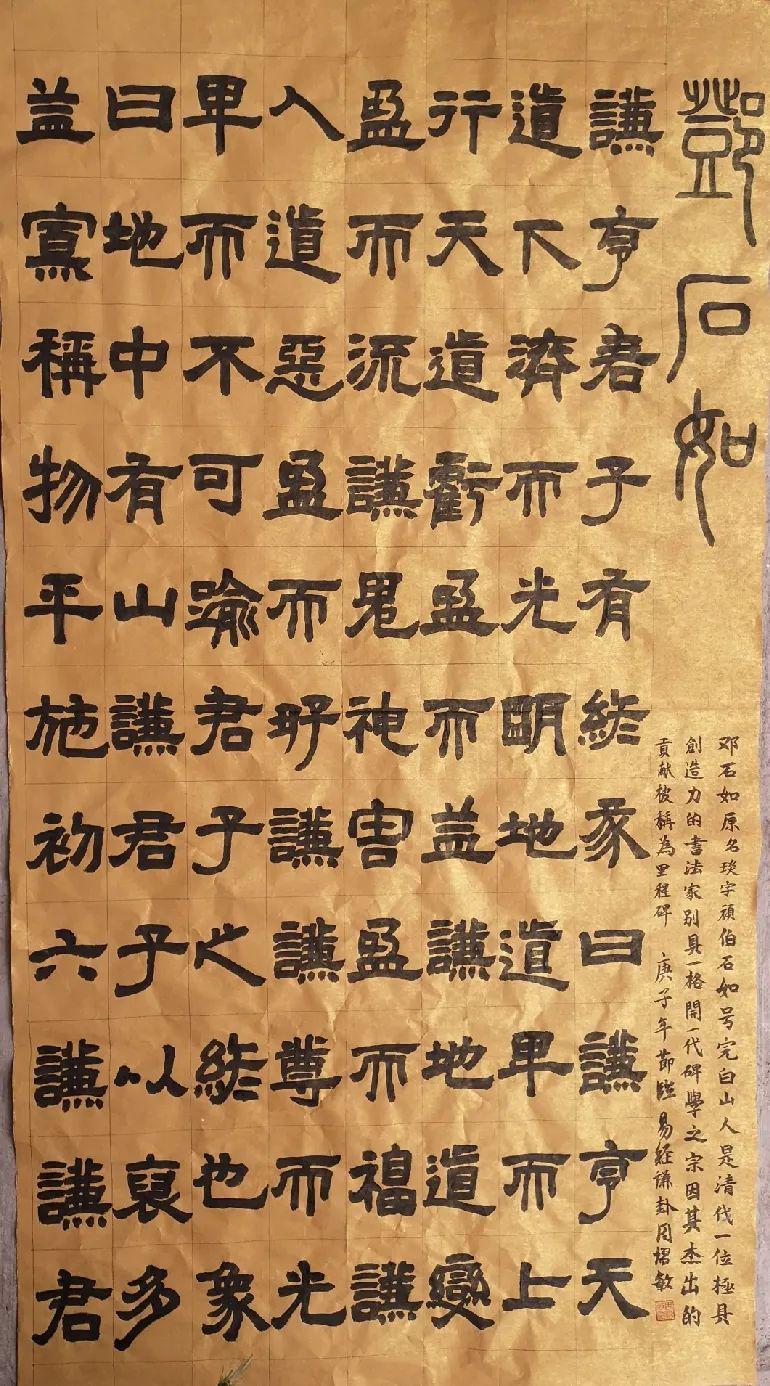 鄧石如
邓石如原名琰字頑伯石如号完白山人是清代一位極具
創造力的書法家別具一格開一代碑學之宗因其杰出的
貢献被稱為里程碑 庚子年節臨易經謙卦周敏
謙亨君子有終彖曰謙亨天
道下濟而光明地道卑而上
行天道虧盈而益謙地道變
盈而流謙鬼神害盈而福謙
人道惡盈而好謙謙尊而光
卑而不可踰君子之終也象
曰地中有山謙君子以裒多
益寡稱物平施初六謙謙君